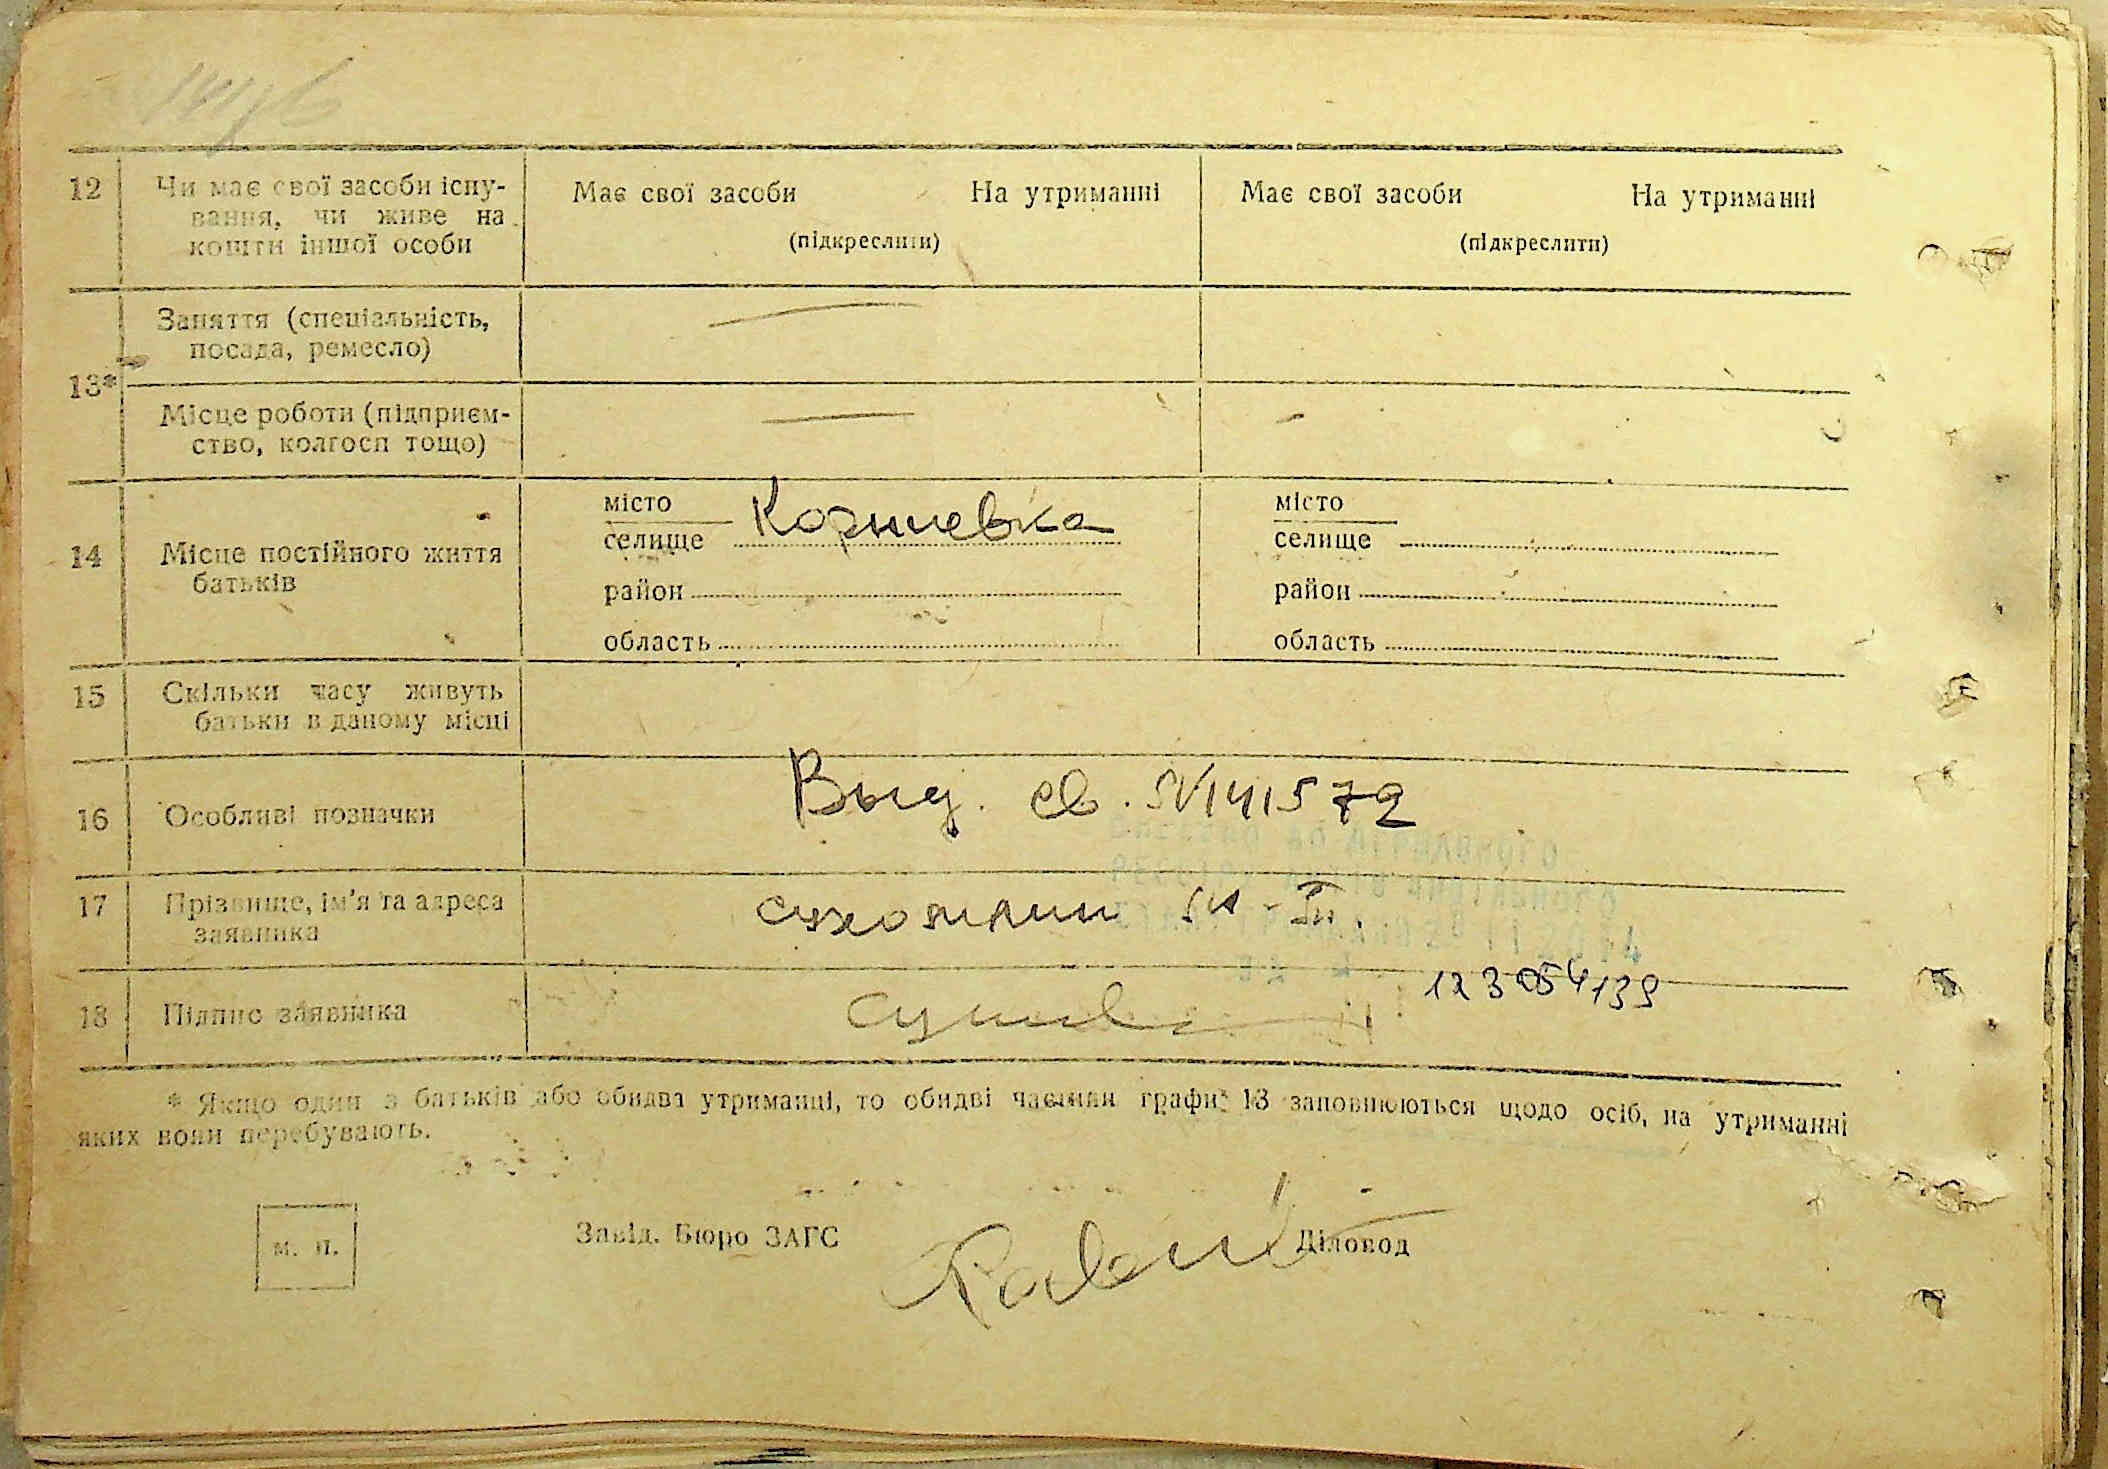 12 Чи має свої засоби існу-
вання, чи живе на
кошти іншої особи
Має свої засоби На утриманні
(підкреслити)
Має свої засоби На утриманні
(підкреслити)
13*
Заняття (спеціальність,
посада, ремесло)
Місце роботи (підприєм-
ство, колгосп тощо)
14 Місце постійного життя
батьків
місто
селище Коршевка
район
область
місто
селище
район
область
15 Скільки часу живуть
батьки в даному місці
16 Особливі позначки
Выд. св. 141572
ВНЕСЕНО ДО ДЕРЖАВНОГО
17 Прізвище, ім'я та адреса
заявника
18 Підпис заявника
* Якщо один з батьків або обидва утриманці, то обидві частини графи 13 заповнюються щодо осіб, на утриманні
яких вони перебувають.
м. п.
Завід. Бюро ЗАГС
Діловод